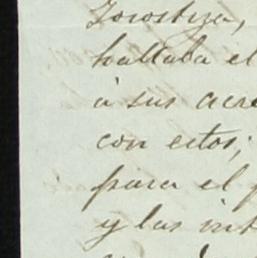 Gorostiza,
hallaba el
á sus acre
con estos;
para el p
y las int